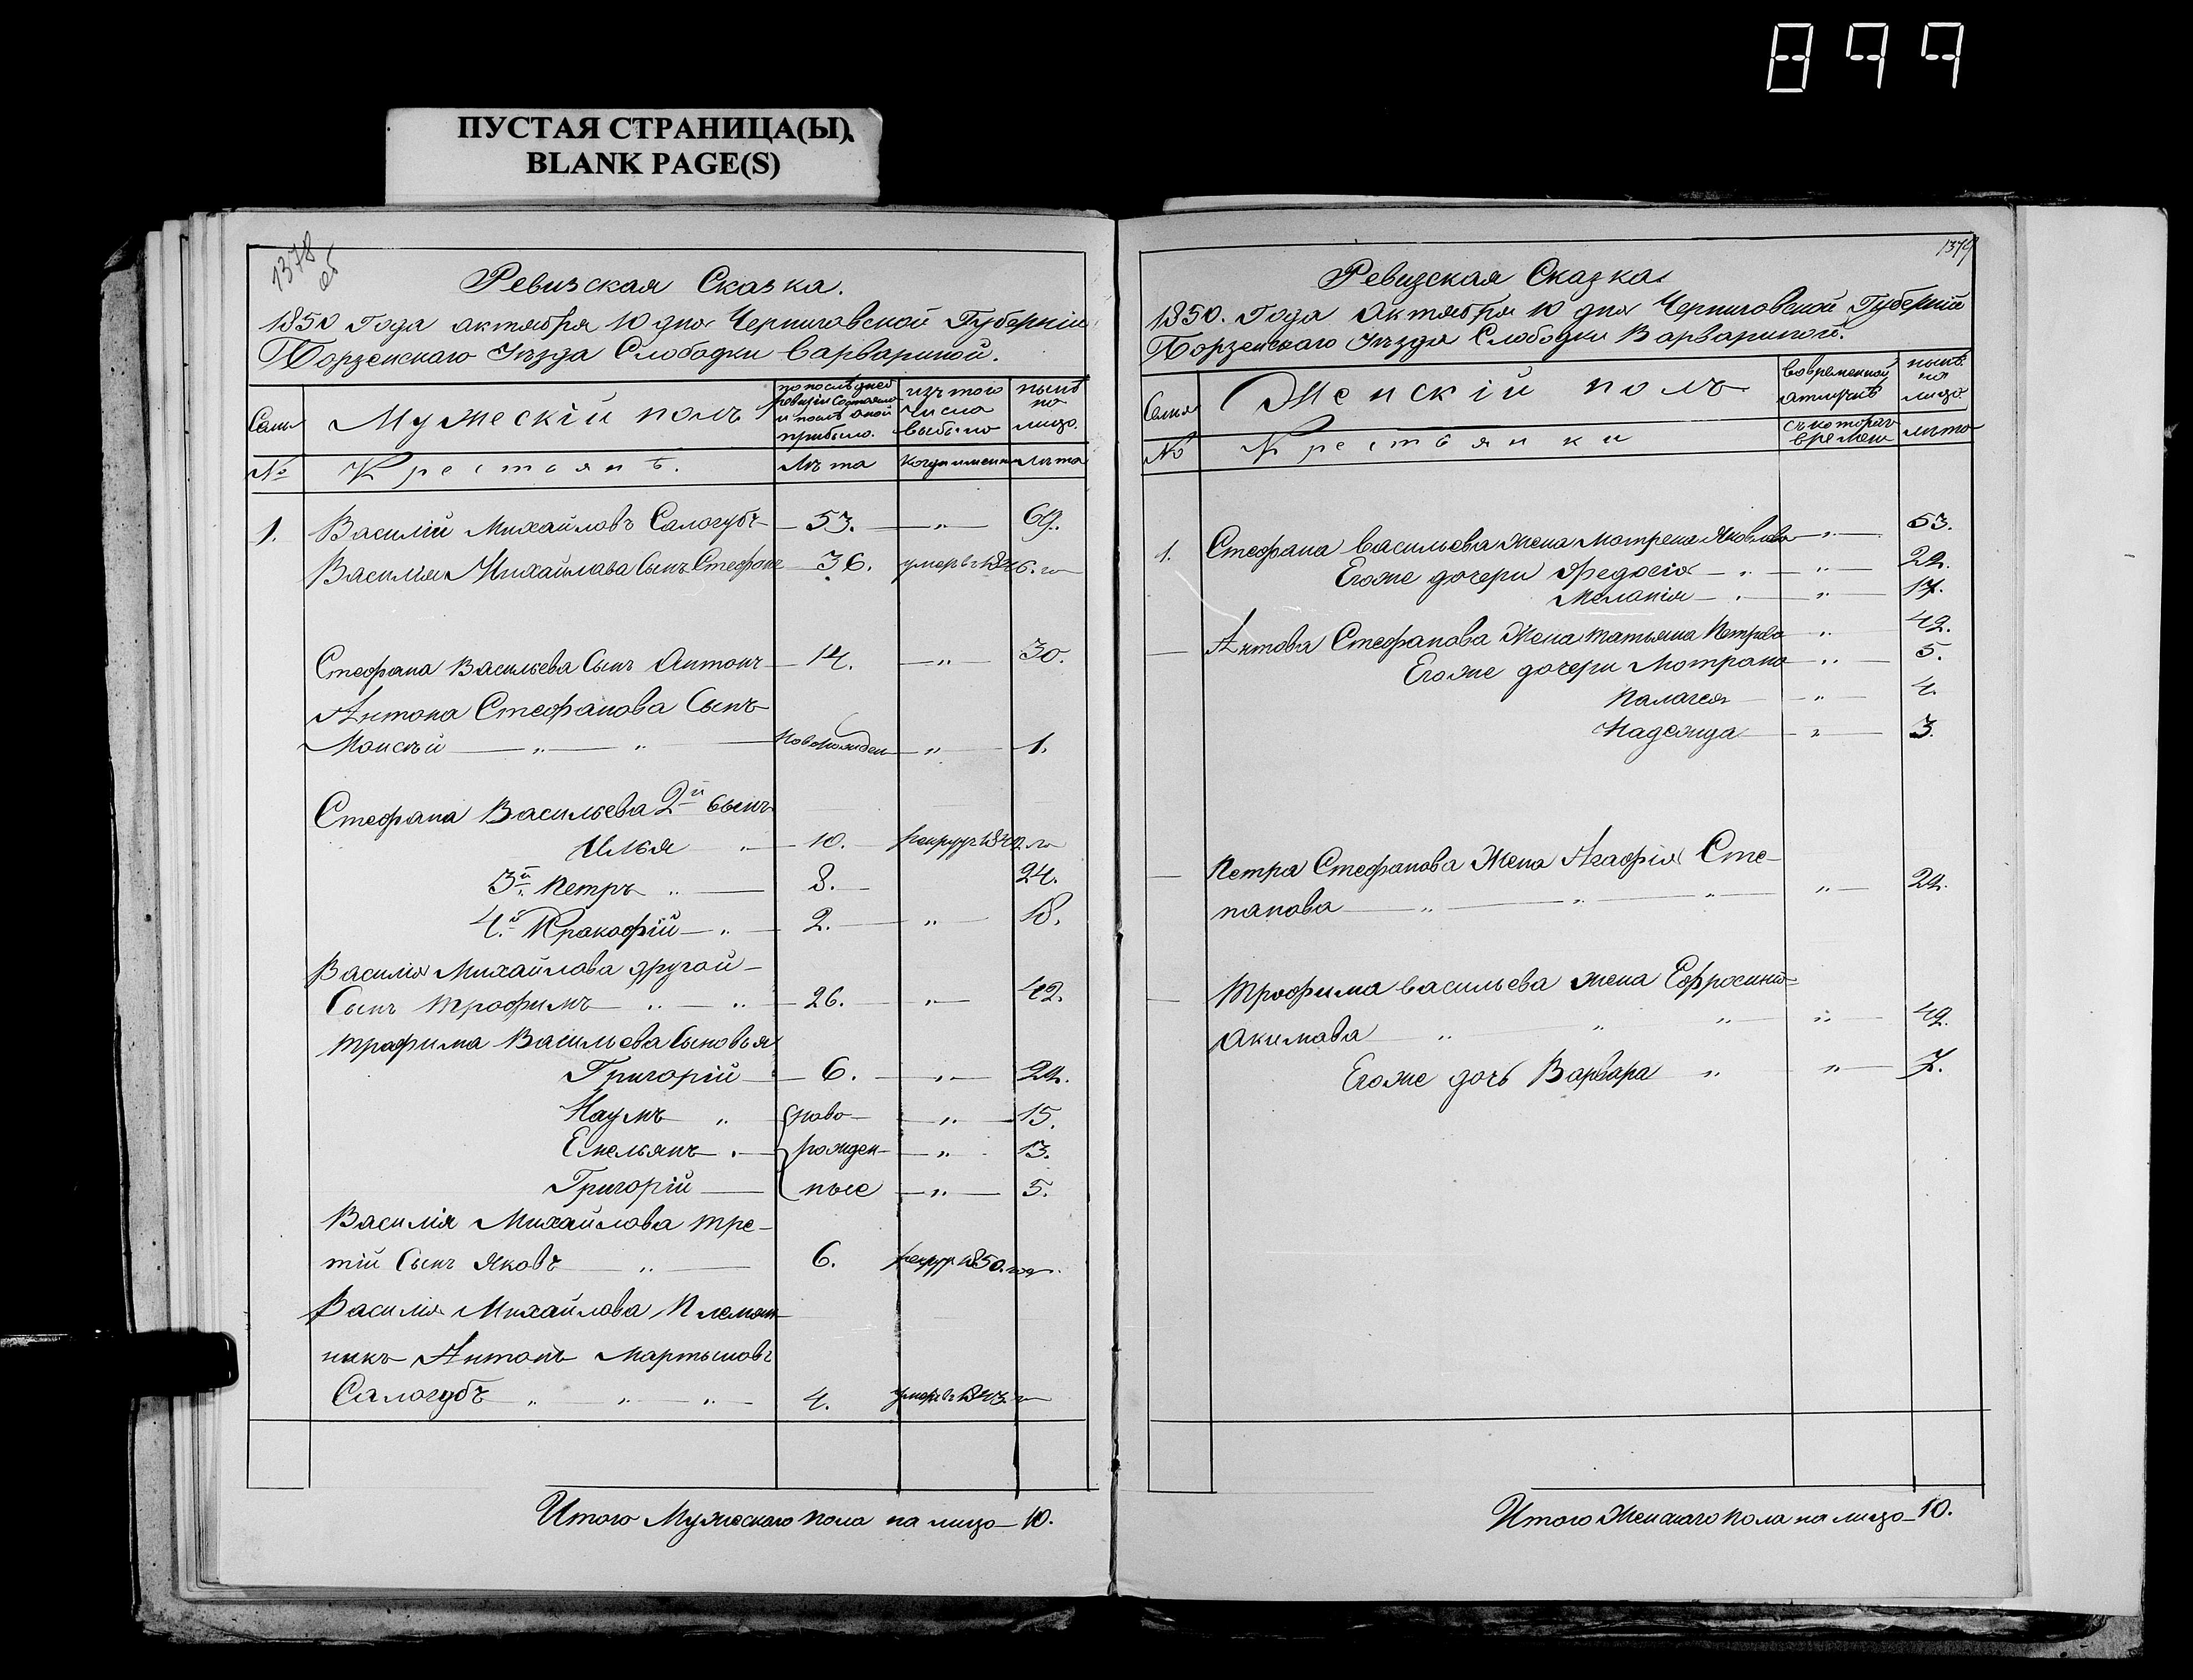 899
ПУСТАЯ СТРАНИЦА(Ы)
BLANK PAGE(S)
1378
об
Ревизская Сказка.
1850 Года октября 10 дня Черниговской Губерніи
Борзенскаго Уѣзда Слободки Варвариной.
Семьи Мужескій полъ по послѣдней ревизіи состояло и послѣ оной прибыло. изъ того числа выбыло нынѣ на лицо.
№ Крестьянѣ. Лѣта Когда именно Лѣта
1. Василій Михайловъ Салогубъ 53. " 69.
Василія Михайлова Сынъ Стефанъ 36. умеръ въ 1846. го
Стефана Васильева Сынъ Антонъ 14. " 30.
Антона Стефанова Сынъ
Моисѣй " " новорожден " 1.
Стефана Васильева 2й сынъ
Илья " 10. рекрутъ 1840 го
3й Петръ " 8. 24.
4й Пракофій " 2. " 18.
Василія Михайлова другой
Сынъ Трофимъ " " 26. " 42.
Трафима Васильева Сыновья
Григорій 6. " 22.
Наумъ " ново- " 15.
Емельянъ рожден- " 13.
Григорій ные " 5.
Василія Михайлова тре-
тій Сынъ Яковъ " 6. рекрут 1850. год.
Василія Михайлова Племян-
никъ Антонъ Мартыновъ
Салогубъ " " " 4. умеръ въ 1843. го
Итого Мужескаго пола на лицо 10.
1379
Ревизская Сказка.
1850. Года Октября 10 дня Черниговской Губерніи
Борзенскаго Уѣзда Слободки Варвариной.
Семья Женскій полъ во временной отлучкѣ нынѣ на лицо.
№ Крестьянки съ котораго времени лѣта
1. Стефана Васильева жена Мотрена Яковлева " 53.
Егоже дочери Федосія " " 22.
Меланія " " 17.
Антона Стефанова Жена Татьяна Петрова " 42.
Егоже дочери Мотрона " 5.
Палагея " 4.
Надежда " 3.
Петра Стефанова Жена Агафія Сте-
панова " " " " 22.
Трофима Васильева жена Ефросинія
Акимова " " " " 42.
Егоже дочь Варвара " " 7.
Итого Женскаго пола на лицо 10.